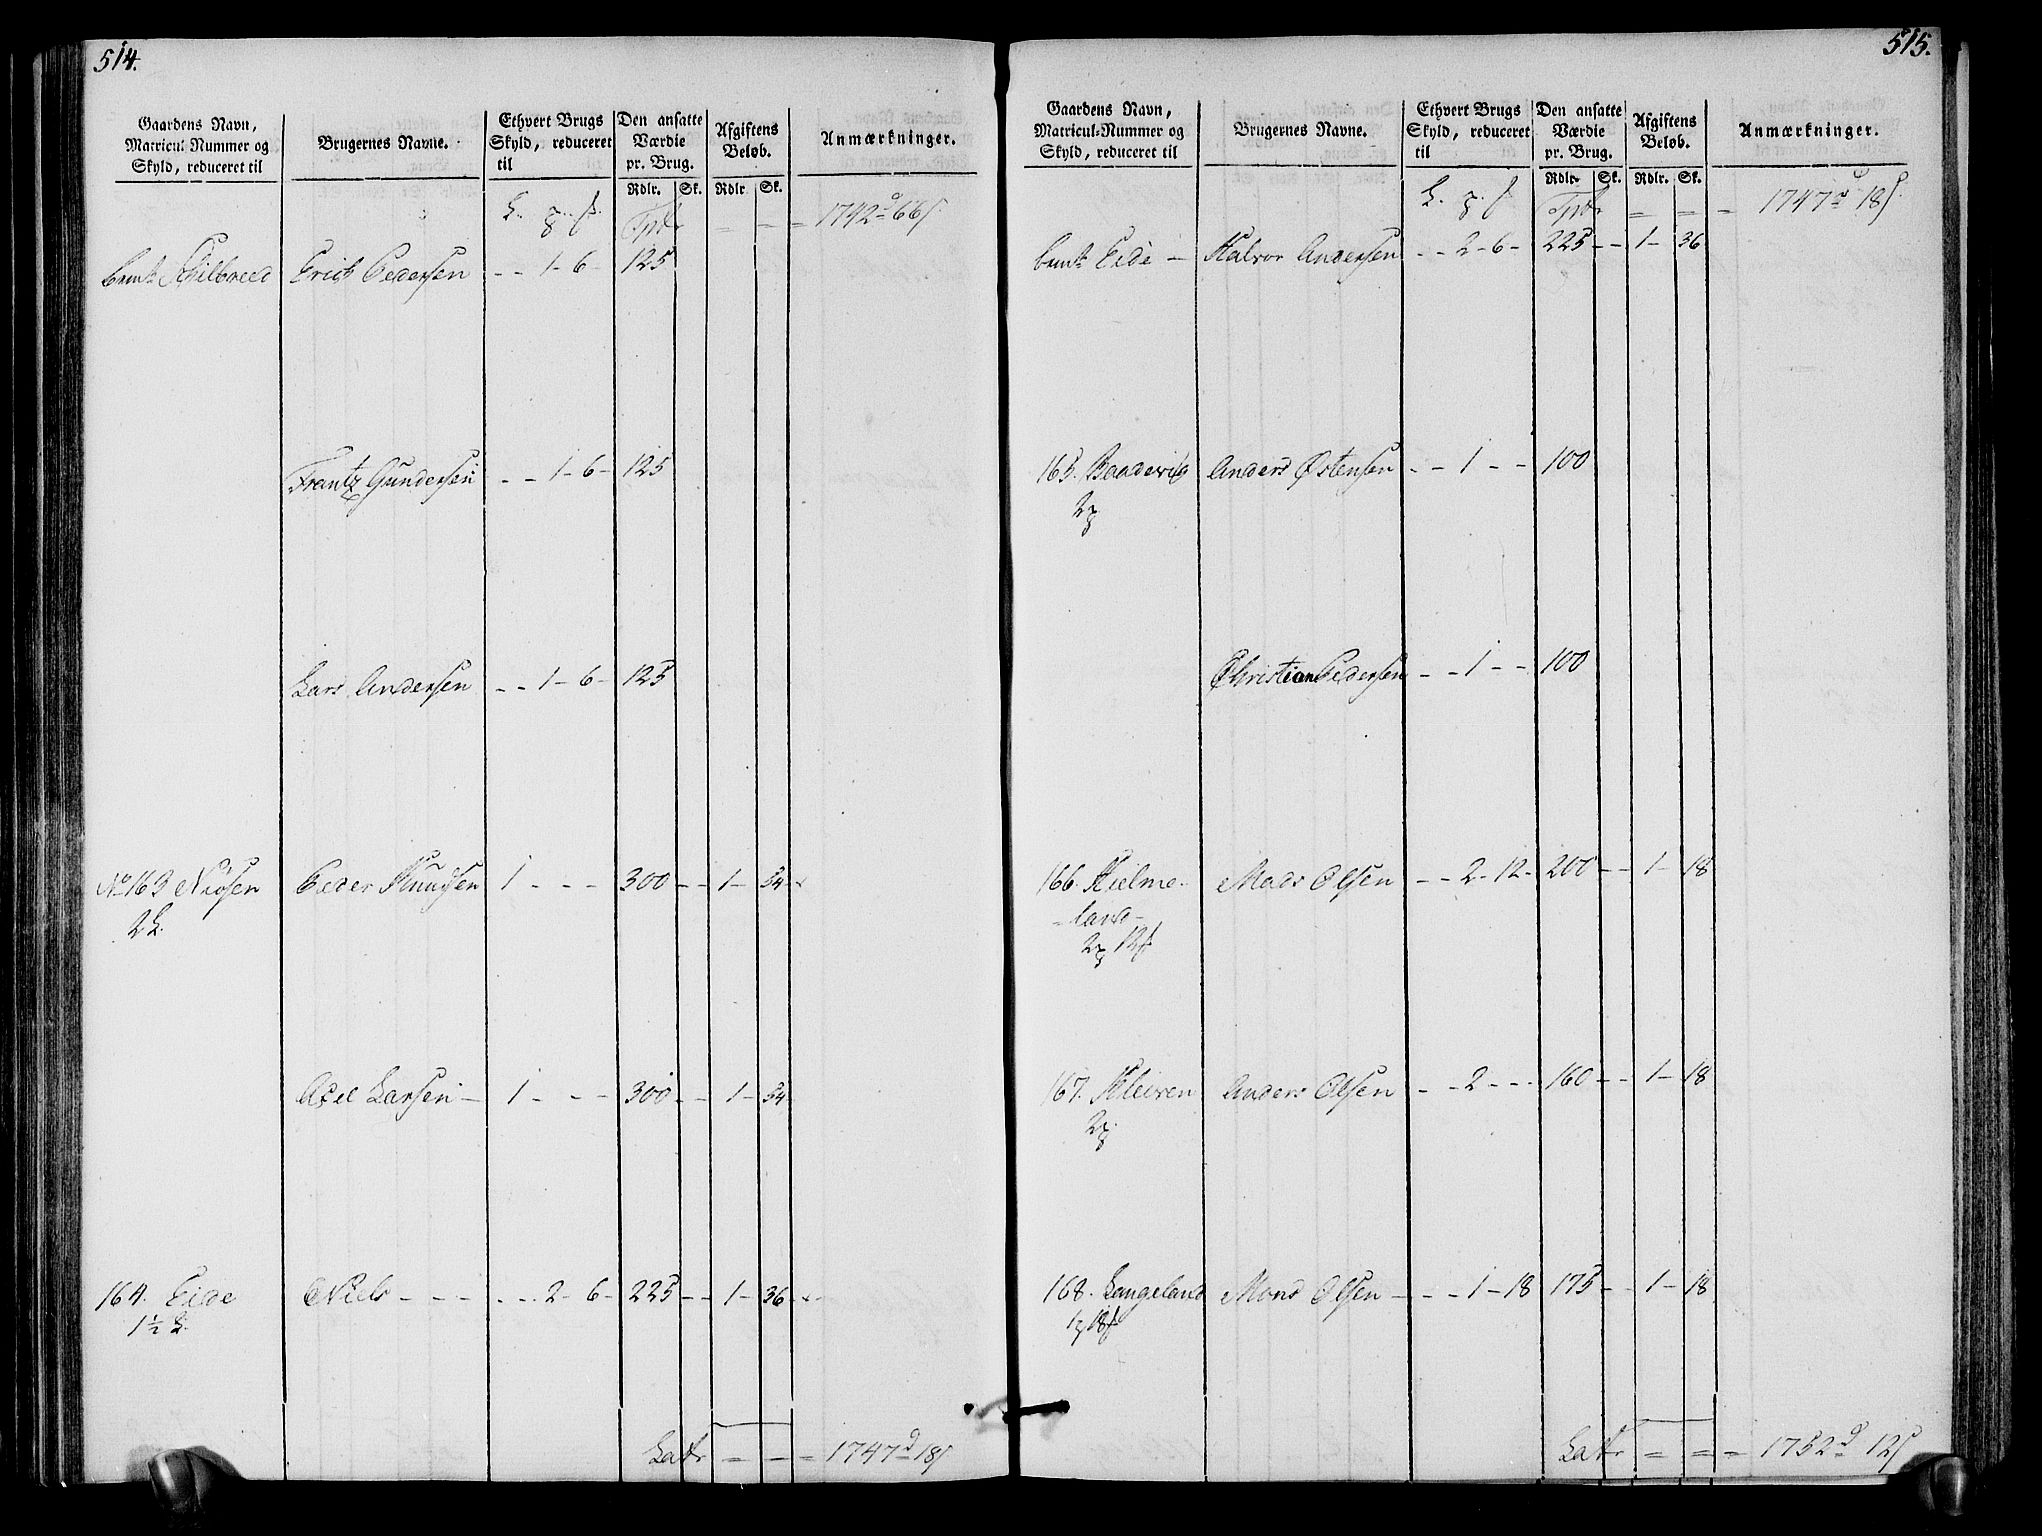 514.
Gaardens Navn,
Matricul-Nummer og
Skyld, reduceret til
Brugernes Navne.
Ethvert Brugs
Skyld, reduceret
til
Den ansatte
Værdie
pr. Brug.
Rdlr. Sk.
Afgiftens
Beløb.
Rdlr. Sk.
Anmærkninger.
Tptr = = = 1742 d 66 s
Erich Pedersen - - 1 - 6 - 125
Frantz Gundersen - - 1 - 6 - 125
Lars Andersen - - 1 - 6 - 125
No 163 Niøsen Peder Knudsen 1 - - - 300 - - 1 - 54
2 L.
Axel Larsen - 1 - - - 300 - - 1 - 54
164. Eide Niels - - - - - 2 - 6 - 225 - - 1 - 36
1 1/2 L.
Latr = = = 1747 d 18 s
515.
Gaardens Navn,
Matricul-Nummer og
Skyld, reduceret til
Brugernes Navne.
Ethvert Brugs
Skyld, reduceret
til
Den ansatte
Værdie
pr. Brug.
Rdlr. Sk.
Afgiftens
Beløb.
Rdlr. Sk.
Anmærkninger.
Tptr = = = 1747 d 18 s
Eide - Halvor Andersen - - 2 - 6 - 225 - - 1 - 36
165. Baadevig Anders Østensen - - 1 - - 100
2
Christian Pedersen - - 1 - - 100
166. Hielme- Mads Olsen - - 2 - 12 - 200 - - 1 - 18
- land -
2 12
167. Kleiven Anders Olsen - - 2 - - - 160 - - 1 - 18
2
168. Langeland Mons Olsen - - - 1 - 18 175 - - 1 - 18
1 18
Latr = = = 1752 d 12 s